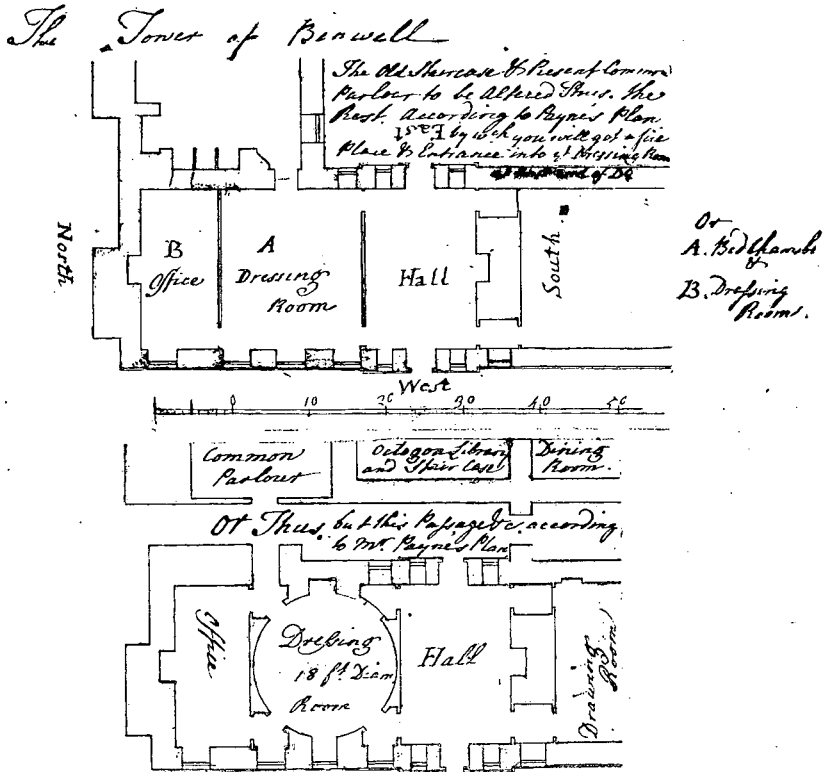 The Tower of Benwell
The Old Staircase & Present Common
Parlour to be Altered Thus. The
Rest. According to Payne's Plan
East
by wch you will get a fire
Place & Entrance into yt Dressing Room
at the end of Do
North
B
Office
A
Dressing
Room
Hall
South.
Or
A. Bedchambr
&
B. Dressing
Rooms.
West
0 10 20 30 40 50
Common
Parlour
Octogon Library
and Stair Case
Dining
Room.
Or Thus, but this Passage &c. according
to Mr. Payne's Plan
Office
Dressing
18 ft. Diam
Room
Hall
Drawing
Room